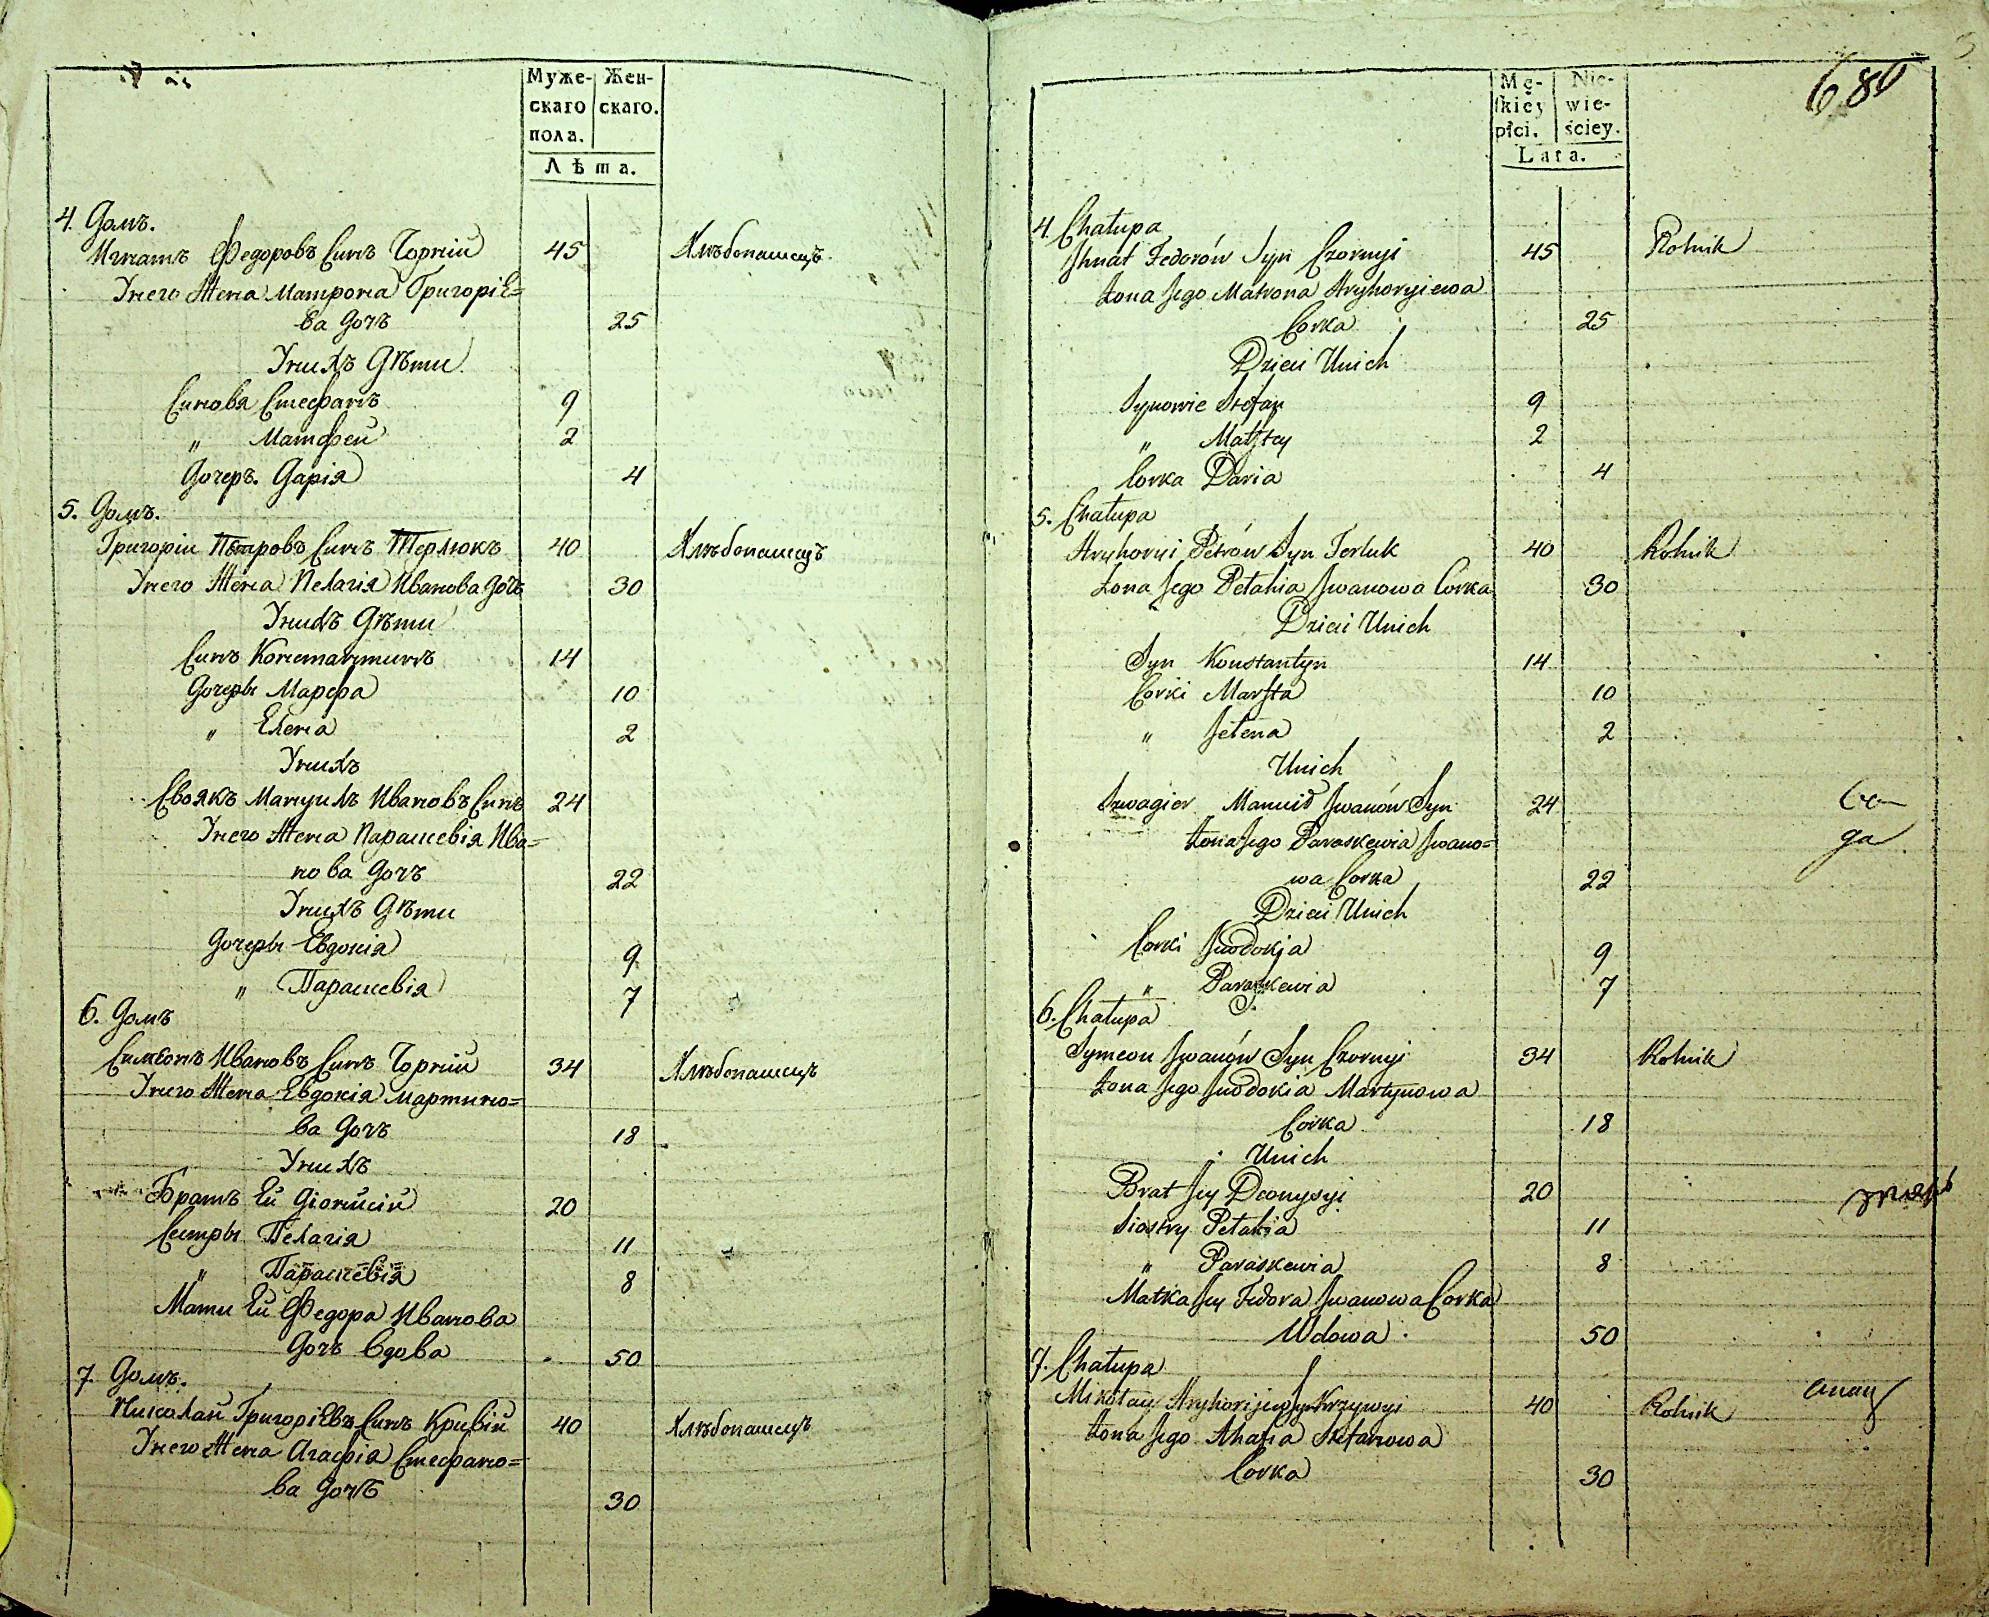 Муже-
скаго
пола.
Жен-
скаго.
Лѣта.
4. Домъ.
Игнатъ Федоровъ Синъ Чорній 45 Хлѣбопашецъ
Унего Жена Матрона Григоріе=
ва дочъ 25
Унихъ Дѣти
Синовя Стефанъ 9
„ Матфей 2
Дочеръ. Дарія 4
5. Домъ.
Григорій Пѣтровъ Синъ Терлюкъ 40 Хлѣбопашецъ
Унего Жена Пелагія Иванова дочъ 30
Унихъ Дѣти
Синъ Константинъ 14
Дочеры Марфа 10
„ Елена 2
Унихъ
Своякъ Мануилъ Ивановъ Синъ 24
Унего Жена Парашевія Ива=
нова дочъ 22
Унихъ Дѣти
Дочеры Евдокія 9
„ Парашевія 7
6. Домъ
Симеонъ Ивановъ Синъ Чорній 34 Хлѣбопашецъ
Унего Жена Евдокія Мартино=
ва Дочъ 18
Унихъ
Братъ Ей Діонисій 20
Сестры Пелагія 11
„ Парашевія 8
Мати Ей Федора Иванова
Дочъ Вдова 50
7. Домъ.
Николай Григоріевъ Синъ Кривій 40 Хлѣбопашецъ
Унего Жена Агафія Стефано=
ва Дочъ 30
680
Mę-
ſkiey
płci.
Nie-
wie-
ściey.
Lata.
4. Chałupa
Jhnat Fedorów Syn Czornyi 45 Rolnik
Żona Jego Matrona Hryhoryiewa
Corka 25
Dzieci Unich
Synowie Stefan 9
„ Matftey 2
Corka Daria 4
5. Chałupa
Hryhoryi Petrów Syn Terluk 40 Rolnik
Żona Jego Pełahia Jwanowa Corka 30
Dzieci Unich
Syn Konstantyn 14
Corki Marfta 10
„ Jełena 2
Unich
Szwagier Manuił Jwanów Syn 24
Żona Jego Paraskewia Jwano=
wa Corka 22
Dzieci Unich
Corki Jewdokja 9
„ Paraskewia 7
6. Chałupa
Symeon Jwanów Syn Czornyi 34 Rolnik
Żona Jego Jewdokia Martynowa
Corka 18
Unich
Brat Jey Deonysyi 20
Siostry Pełahia 11
„ Paraskewia 8
Matka Jey Fedora Jwanowa Corka
Wdowa 50
7. Chałupa
Mikołay Hryhorijew Syn Krzywyi 40 Rolnik
Żona Jego Ahafia Stefanowa
Corka 30